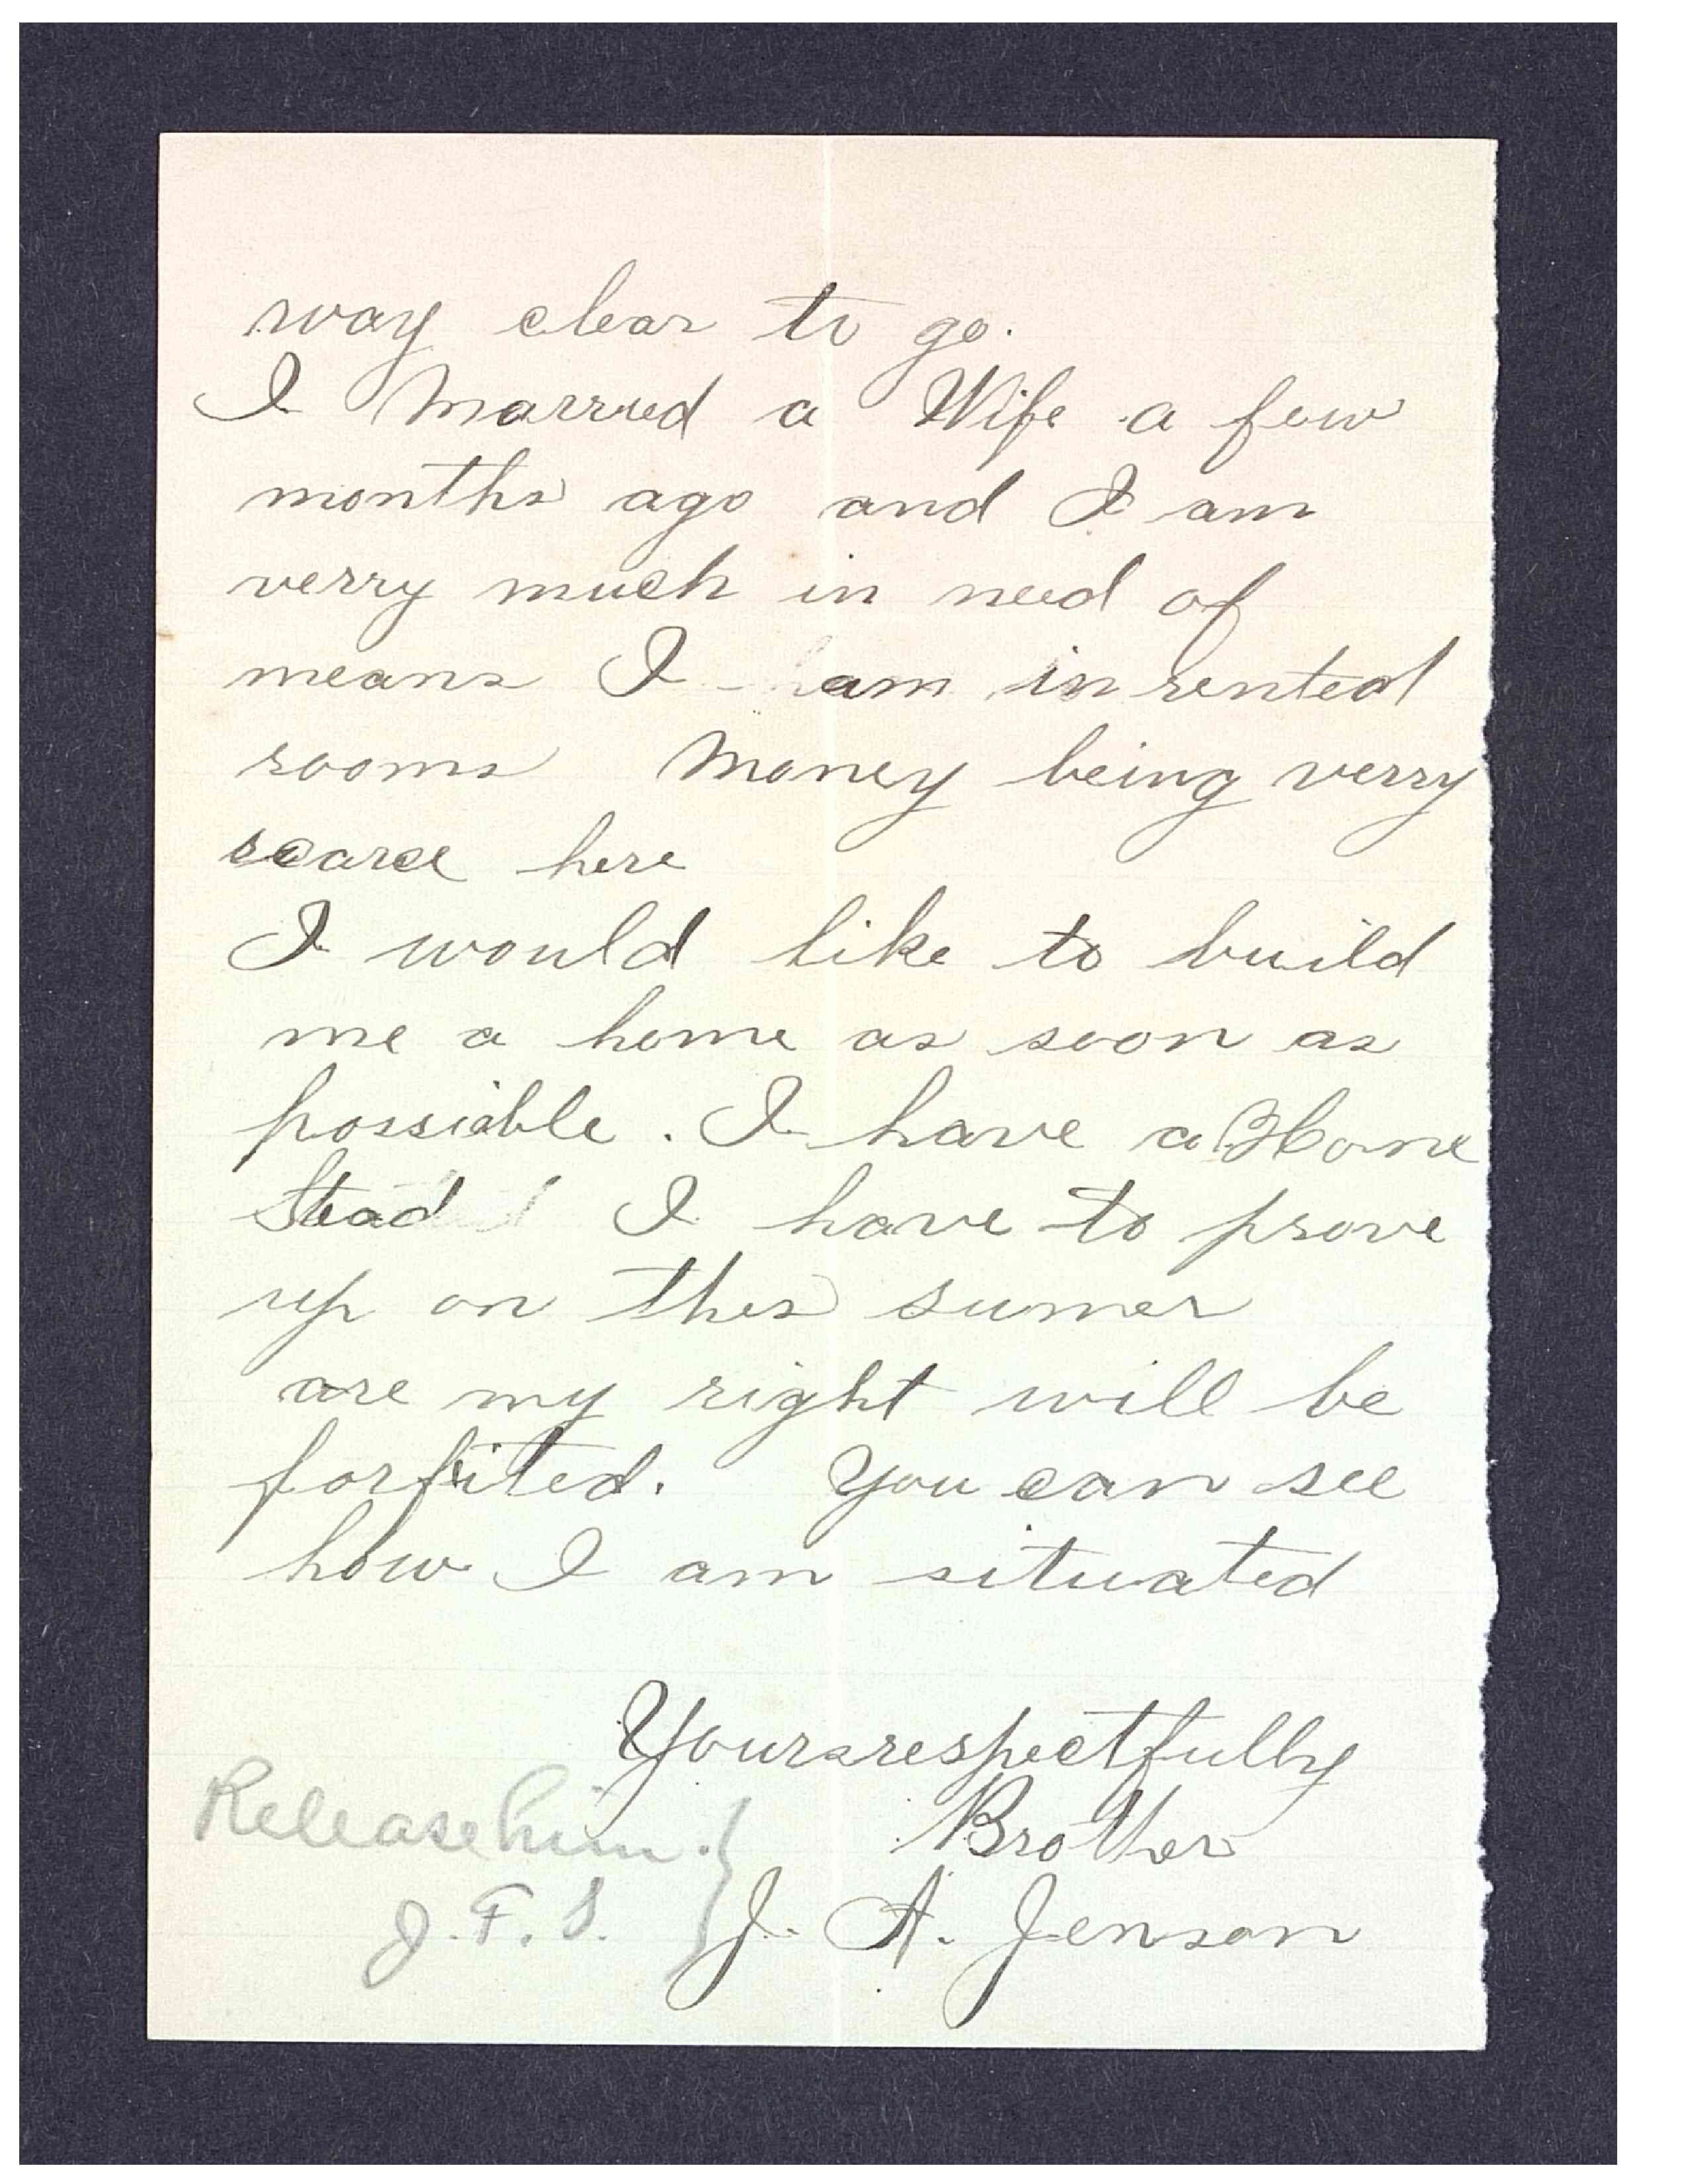 way clear to go.
I Married a Wife a few
months ago and I am
verry much in need of
means I am in rented
rooms Money being verry
scarce here
I would like to build
me a home as soon as
possiable. I have a Home
Stead I have to prove
up on thes sumer
are my right will be
forfeited. You can see
how I am situated
Yours respectfully
Brother
J. A. Jenson
Release him.
J. F. S.